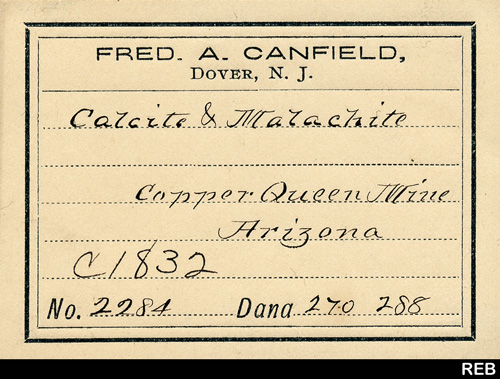 FRED. A. CANFIELD,
DOVER, N. J.
Calcite & Malachite
Copper Queen Mine
Arizona
C1832
No. 2284 Dana 270 288
REB